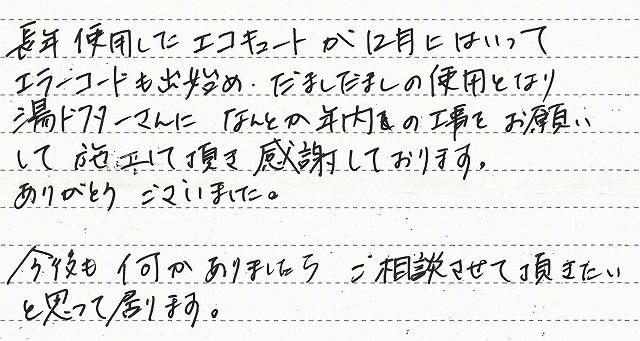 長年 使用した エコキュートが 12月に はいって
エラーコードも出始め、だましだましの使用となり
湯ドクターさんに なんとか年内の工事を お願い
して 施工して頂き 感謝しております。
ありがとう ございました。
今後も 何か ありましたら ご相談させて頂きたい
と思って居ります。